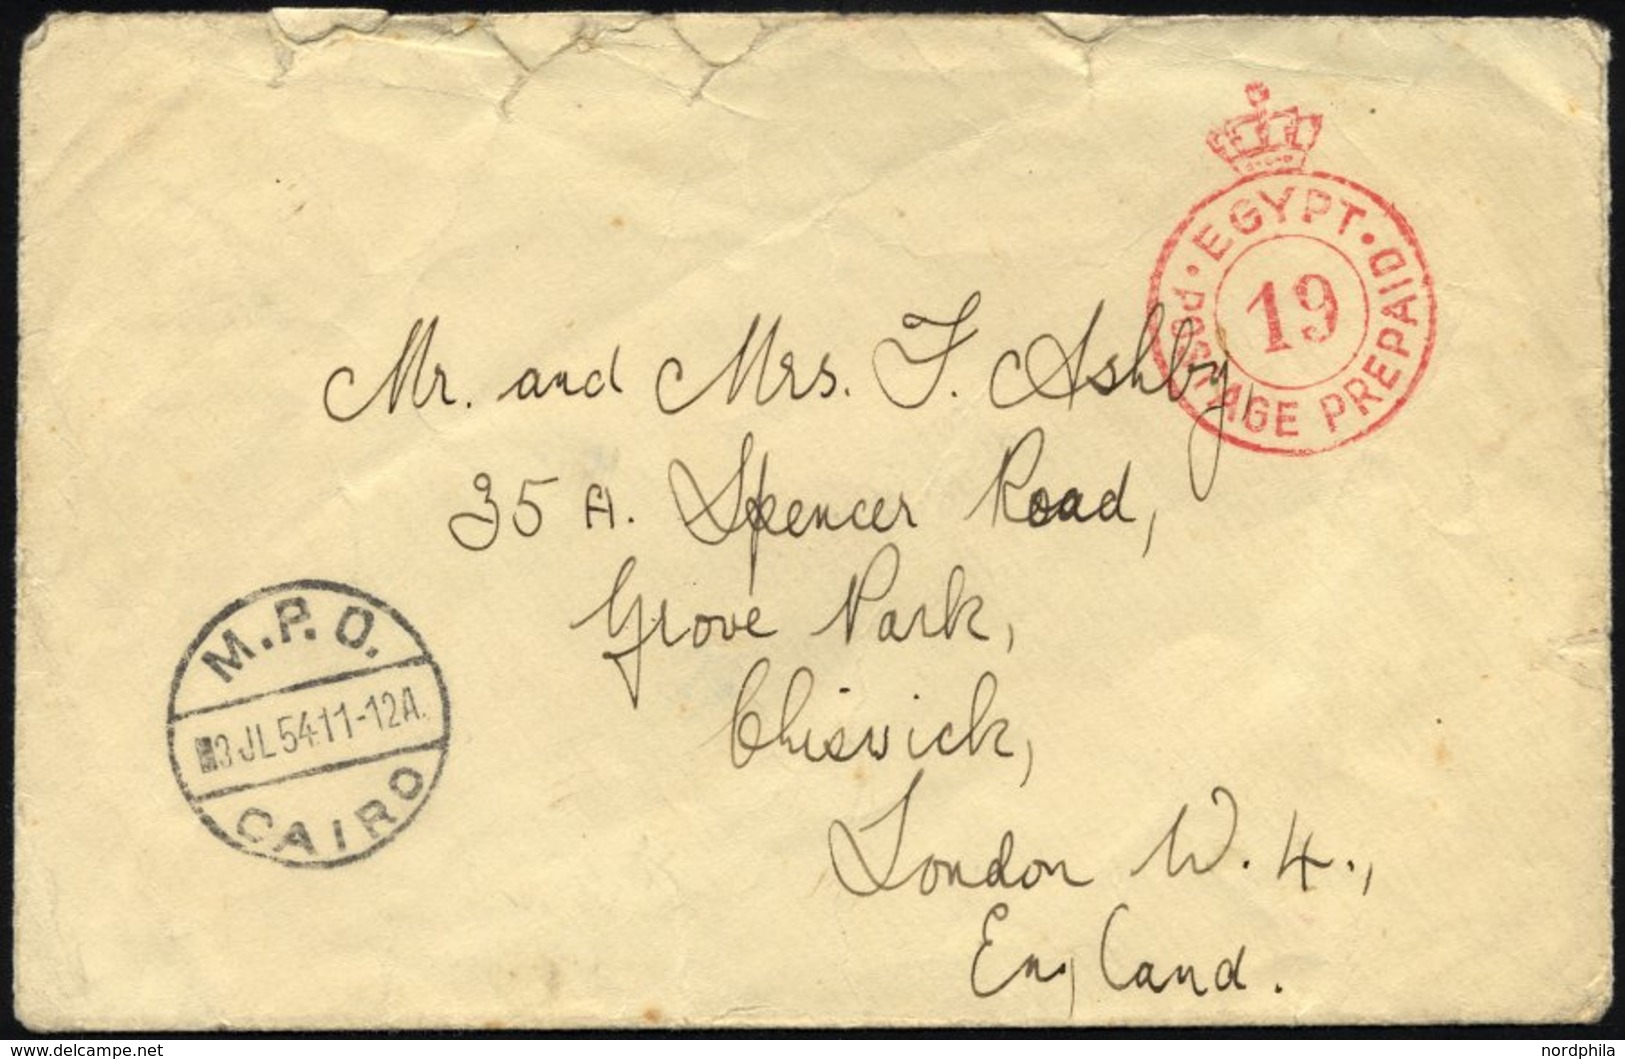 · EGYPT · POSTAGE PREPAID
19
Mr. and Mrs. F. Ashby,
35 A. Spencer Road,
Grove Park,
Chiswick,
London W. 4.,
England.
M.P.O.
3 JL 54 11-12A.
CAIRO
www.delcampe.net
nordphila